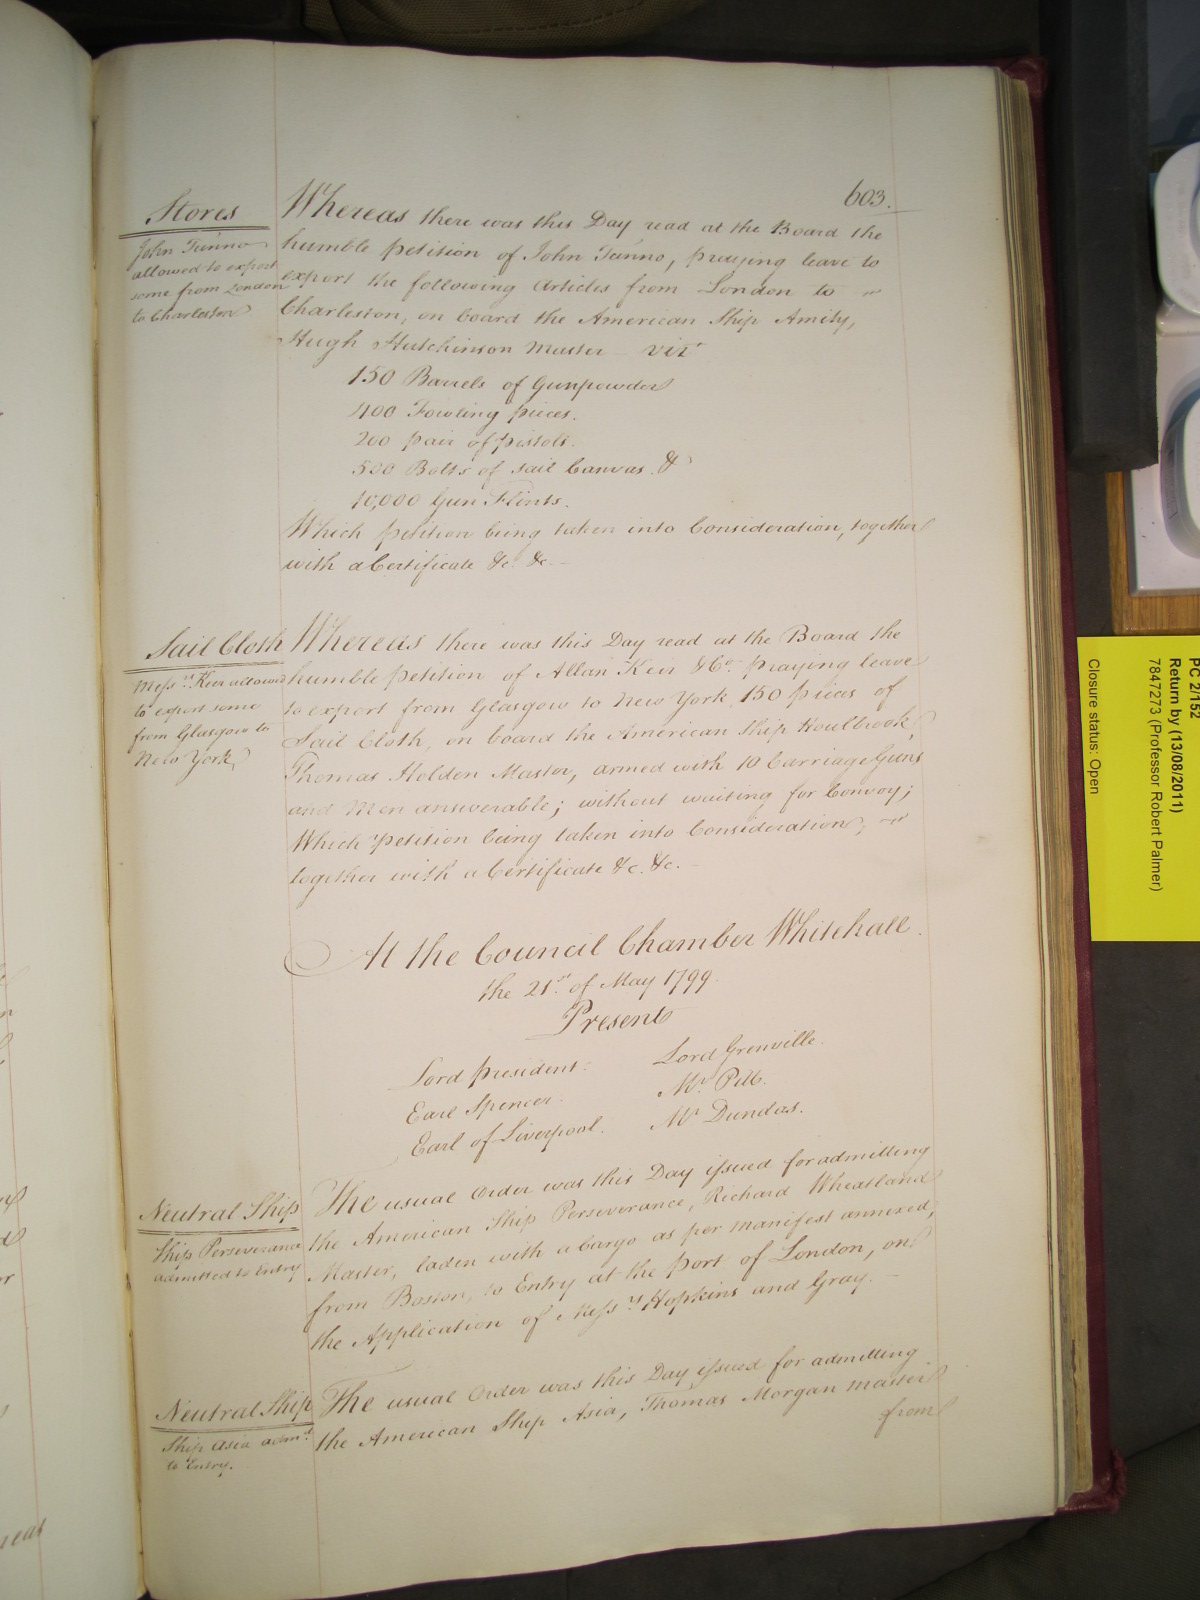 603.
Stores
John Tunno
allowed to export
some from London
to Charleston
Whereas there was this Day read at the Board the
humble petition of John Tunno, praying leave to
export the following Articles from London to
Charleston, on board the American Ship Amity,
Hugh Hutchinson Master vizt
150 Barrels of Gunpowder
400 Fowling pieces.
200 pair of pistols.
500 Bolts of sail Canvas. &
10,000 Gun Flints.
Which petition being taken into Consideration, together
with a Certificate &c. &c. -
Sail Cloth
Messrs. Keer allowed
to export some
from Glasgow to
New York,
Whereas there was this Day read at the Board the
humble petition of Allan Keir & Co. praying leave
to export from Glasgow to New York, 150 pieces of
Sail Cloth, on board the American Ship Houlbrook,
Thomas Holden Master, armed with 10 Carriage Guns
and Men answerable; without waiting for Convoy;
Which petition being taken into Consideration,
together with a Certificate &c. &c. -
At the Council Chamber Whitehall.
the 21st. of May 1799.
Present
Lord President.
Earl Spencer.
Earl of Liverpool.
Lord Grenville.
Mr. Pitt.
Mr. Dundas.
Neutral Ship
Ship Perseverance
admitted to Entry
The usual Order was this Day issued for admitting
the American Ship Perseverance, Richard Wheatland
Master, laden with a Cargo as per Manifest annexed,
from Boston, to Entry at the port of London, on
the Application of Messrs. Hopkins and Gray. -
Neutral Ship
Ship Asia admd.
to Entry.
The usual Order was this Day issued for admitting
the American Ship Asia, Thomas Morgan Master
from
PC 2/152
Return by (13/08/2011)
7847273 (Professor Robert Palmer)
Closure status: Open